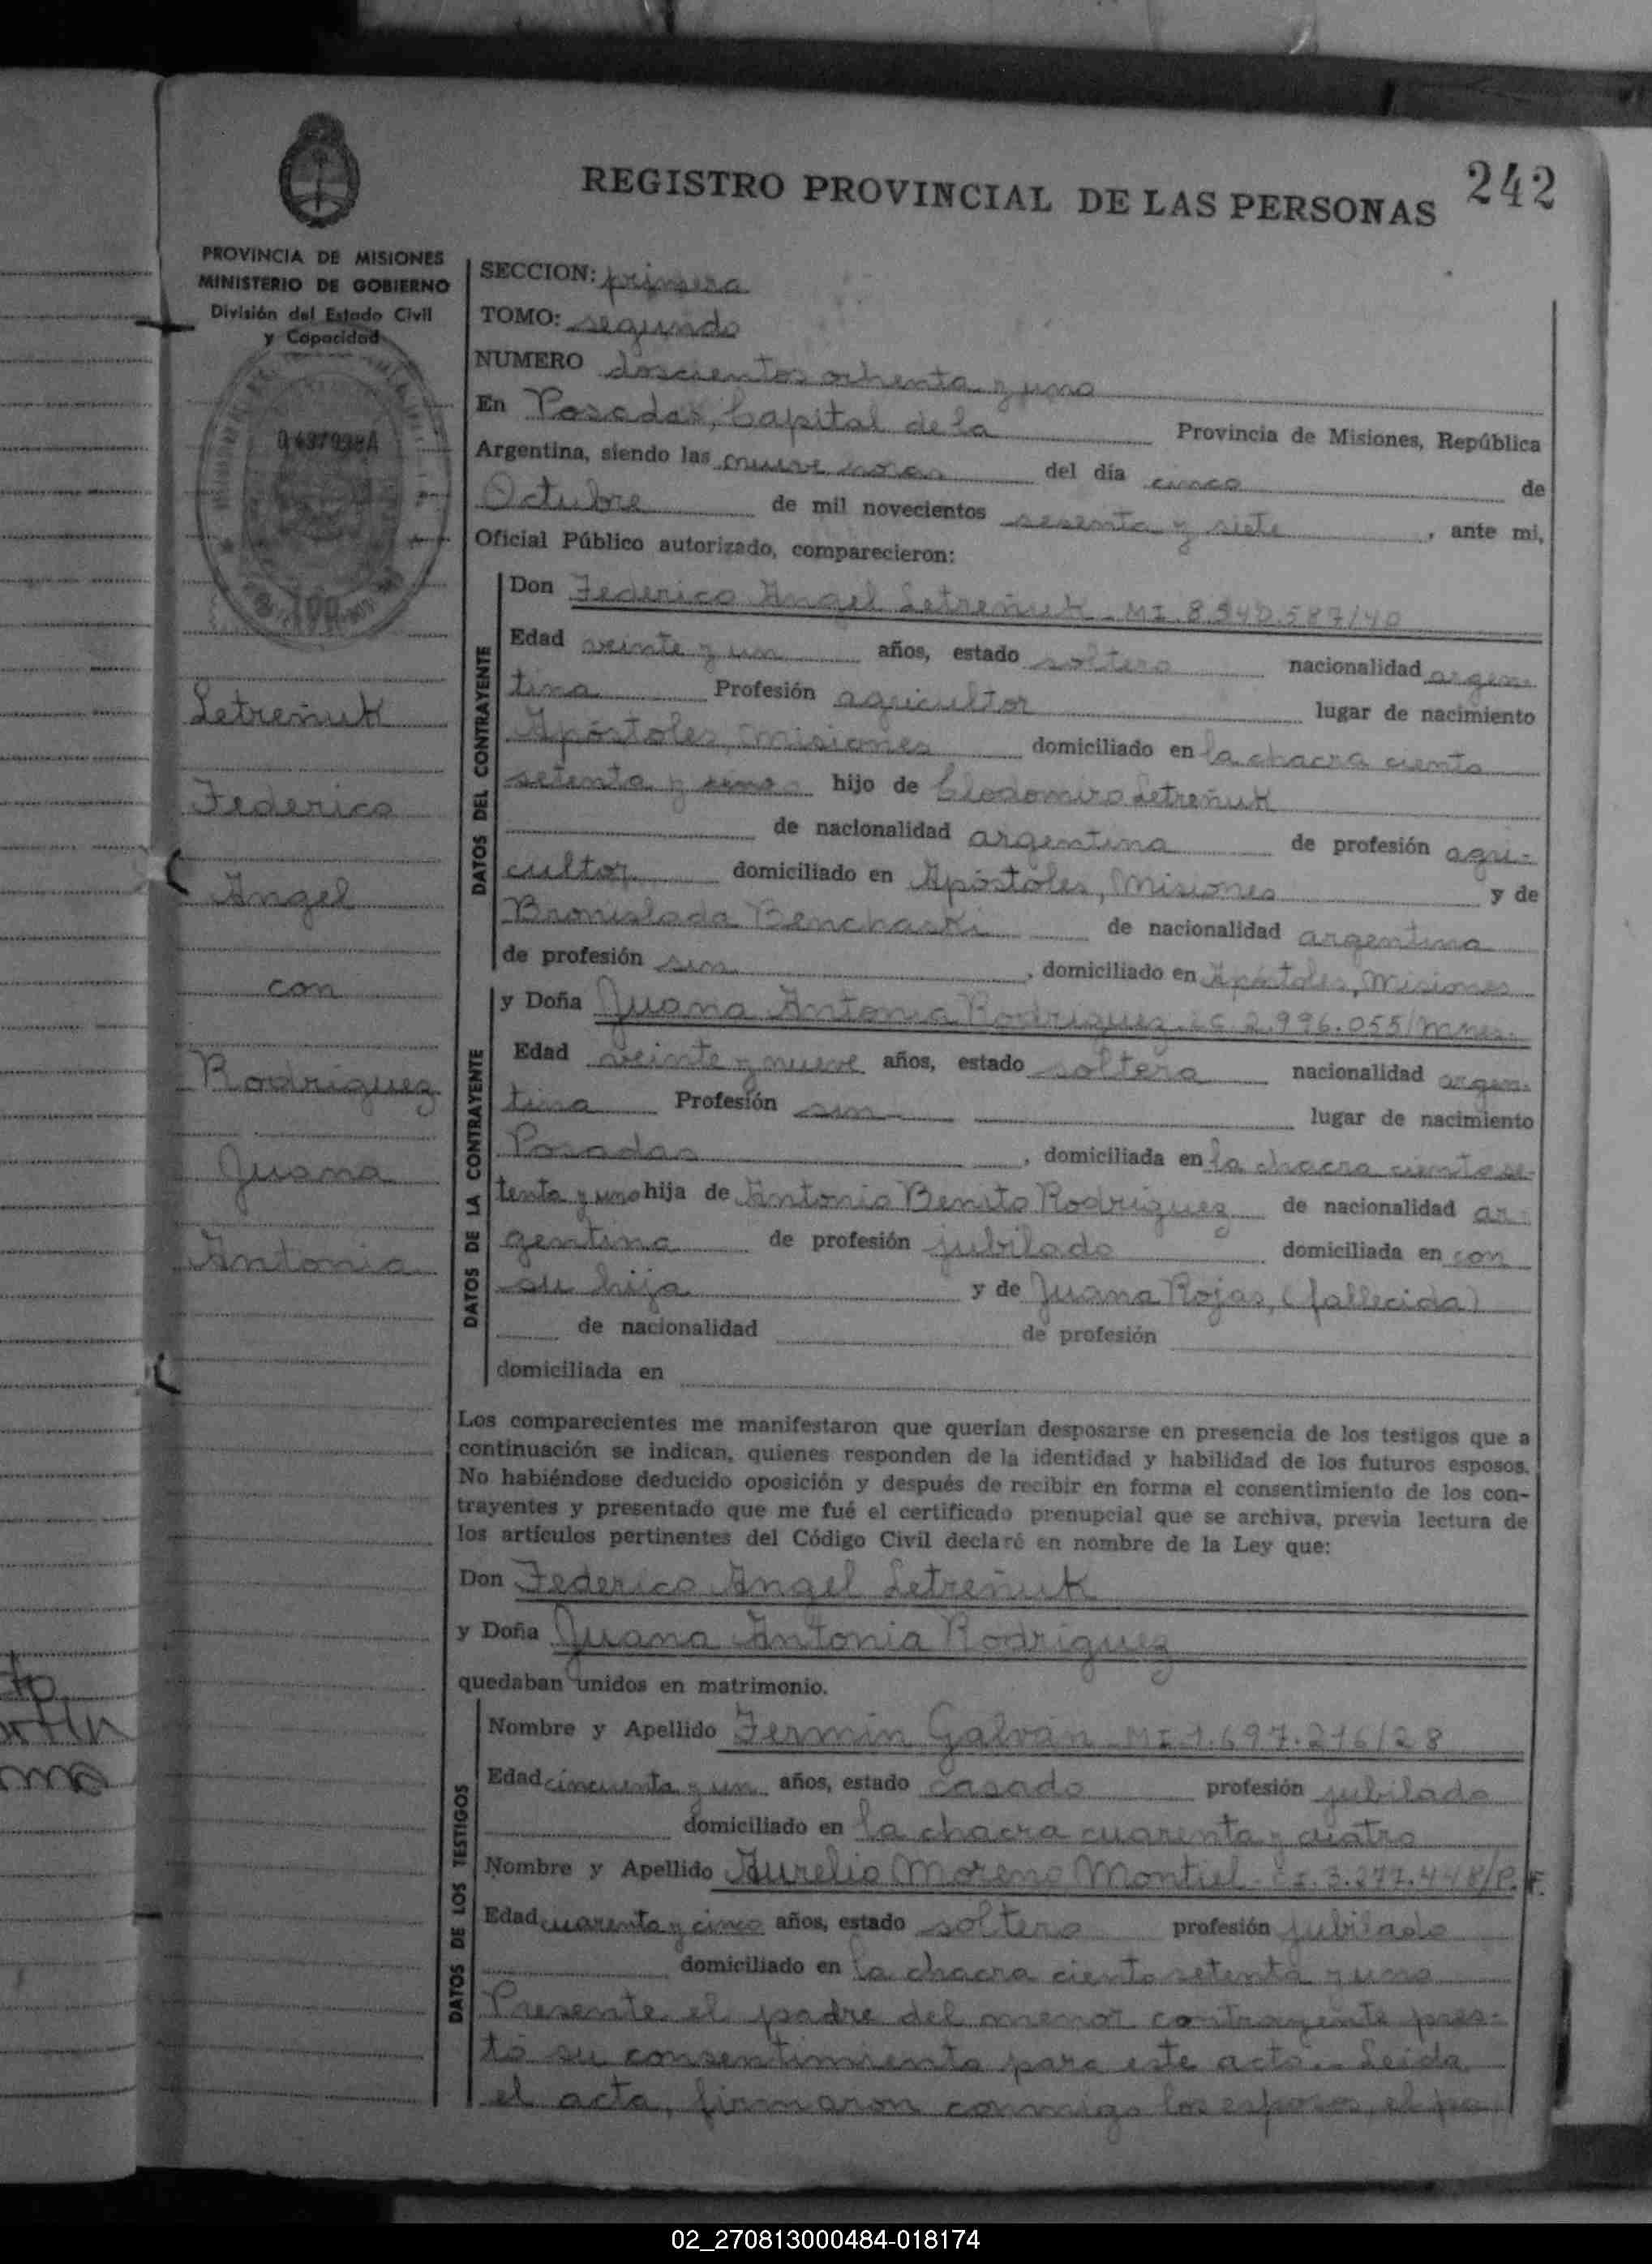 242
REGISTRO PROVINCIAL DE LAS PERSONAS
PROVINCIA DE MISIONES
MINISTERIO DE GOBIERNO
División del Estado Civil
y Capacidad
Letreñuk
Federico
Angel
con
Rodriguez
Juana
Antonia
SECCION: primera
TOMO: segundo
NUMERO doscientos ochenta y uno
En Posadas, Capital de la Provincia de Misiones, República
Argentina, siendo las nueve horas del día cinco de
Octubre de mil novecientos sesenta y siete, ante mi,
Oficial Público autorizado, comparecieron:
DATOS DEL CONTRAYENTE
Don Federico Angel Letreñuk - MI. 8.540.587/40
Edad veinte y un años, estado soltero nacionalidad argen-
tina Profesión agricultor lugar de nacimiento
Apóstoles, Misiones domiciliado en la chacra ciento
setenta y uno hijo de Clodomiro Letreñuk
de nacionalidad argentina de profesión agri-
cultor domiciliado en Apóstoles, Misiones y de
Bronislada Benchaski de nacionalidad argentina
de profesión sin, domiciliado en Apóstoles, Misiones
DATOS DE LA CONTRAYENTE
y Doña Juana Antonia Rodriguez. LC 2.996.055/Mnes.
Edad veinte y nueve años, estado soltera nacionalidad argen-
tina Profesión sin lugar de nacimiento
Posadas, domiciliada en la chacra ciento se-
tenta y uno hija de Antonio Benito Rodriguez de nacionalidad ar-
gentina de profesión jubilado domiciliada en con
su hija y de Juana Rojas, (fallecida)
de nacionalidad de profesión
domiciliada en
Los comparecientes me manifestaron que querían desposarse en presencia de los testigos que a
continuación se indican, quienes responden de la identidad y habilidad de los futuros esposos.
No habiéndose deducido oposición y después de recibir en forma el consentimiento de los con-
trayentes y presentado que me fué el certificado prenupcial que se archiva, previa lectura de
los artículos pertinentes del Código Civil declaré en nombre de la Ley que:
Don Federico Angel Letreñuk
y Doña Juana Antonia Rodriguez
quedaban unidos en matrimonio.
DATOS DE LOS TESTIGOS
Nombre y Apellido Fermin Galván - MI. 1.697.216/28
Edad cincuenta y un años, estado casado profesión jubilado
domiciliado en la chacra cuarenta y cuatro
Nombre y Apellido Aurelio Moreno Montiel - C.I. 3.277.448/P.F.
Edad cuarenta y cinco años, estado soltero profesión jubilado
domiciliado en la chacra ciento setenta y uno
Presente el padre del menor contrayente pres-
tó su consentimiento para este acto.- Leida
el acta, firmaron conmigo los esposos, el pa
02_270813000484-018174